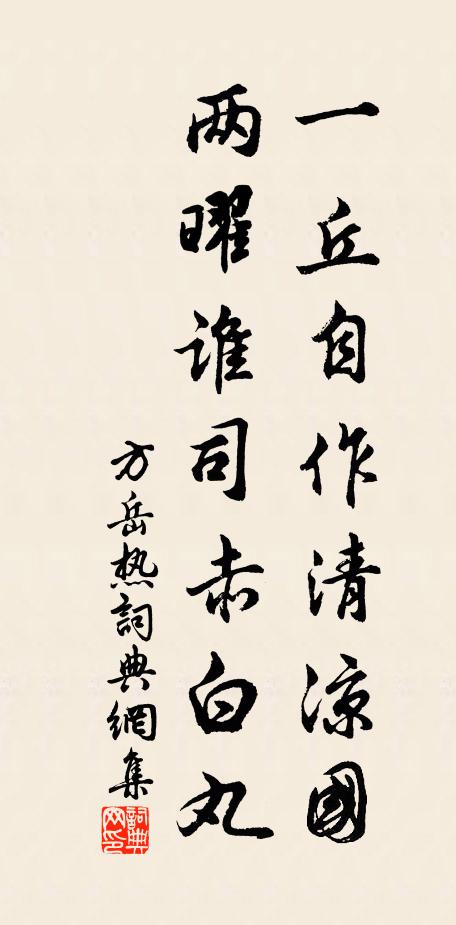 一丘自作清凉國
两曜誰司赤白丸
方岳热詞典網集
詞典网印